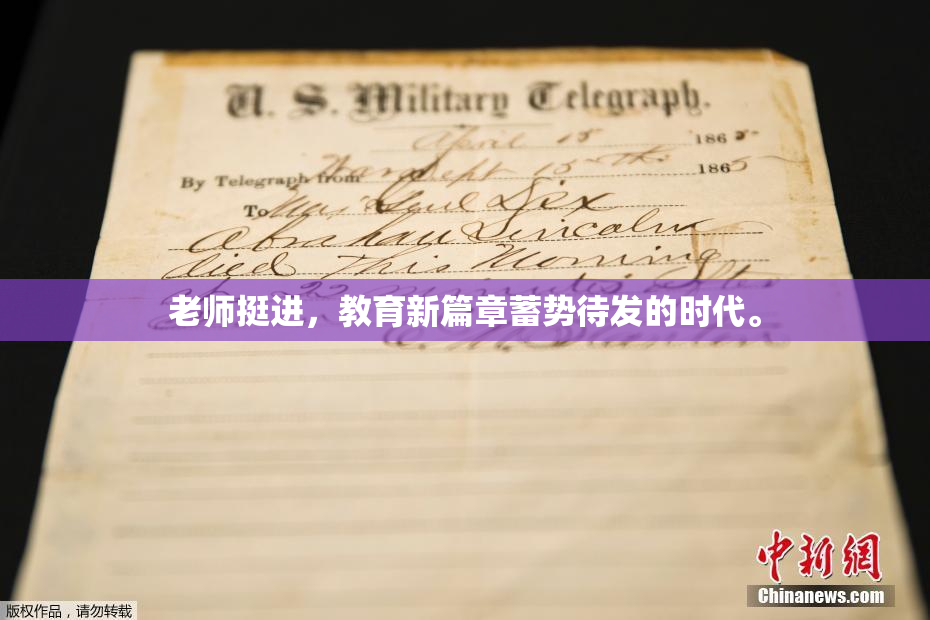 U. S. Military Telegraph.
April 15 1865
By Telegraph from War Dept 15th 1865
To Maj Genl Dix
Abraham Lincoln
died This Morning
at 22 minutes after
老师挺进，教育新篇章蓄势待发的时代。
中新网
Chinanews.com
版权作品，请勿转载